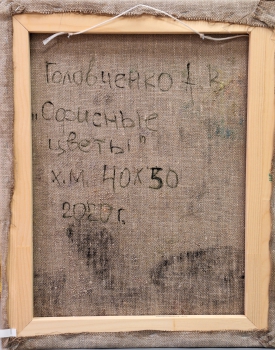 Головченко А. В.
"Офисные
цветы"
х.м. 40х50
2020 г.